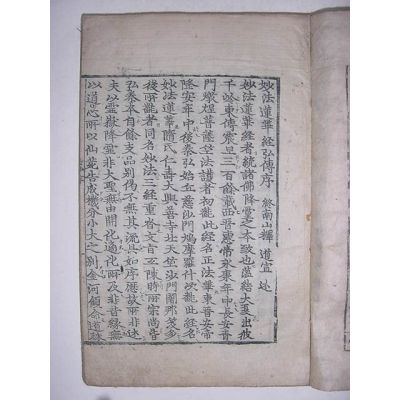 妙法蓮華經弘傳序 終南山釋 道宣 述
妙法蓮華經者統諸佛降靈之本致也蘊結大夏出彼
千齡東傳震旦三百餘載西晉惠帝永康年中長安青
門燉煌菩薩竺法護者初翻此經名正法華東晉安帝
隆安年中後秦弘始龜茲沙門鳩摩羅什次翻此經名
妙法蓮華隋氏仁壽大興善寺北天竺沙門闍那笈多
後所翻者同名妙法三經重沓文旨互陳時所宗尚皆
弘秦本自餘支品別偈不無其流具如序歷故所非述
夫以靈嶽降靈非大聖無由開化適化所及非昔緣無
以導心所以仙苑告成機分小大之別金河顧命道殊